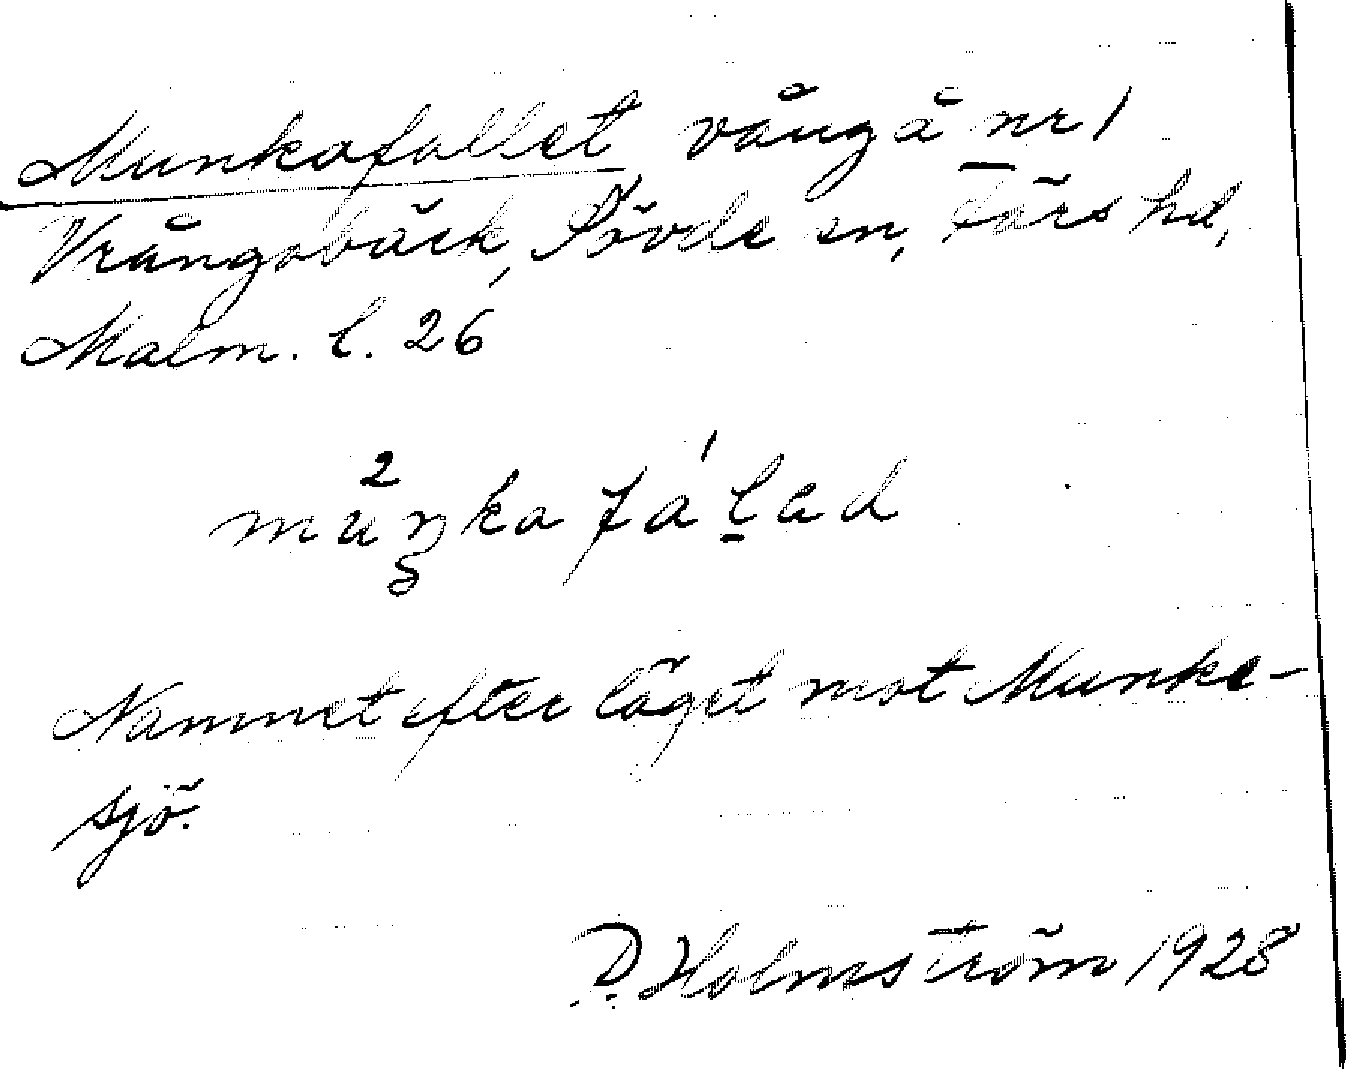 Munkafallet vång å nr 1
Vrångabäck, Sövde sn, Färs hd,
Malm. l. 26
Namnet efter läget mot Munka-
sjö.
D. Holmström 1928